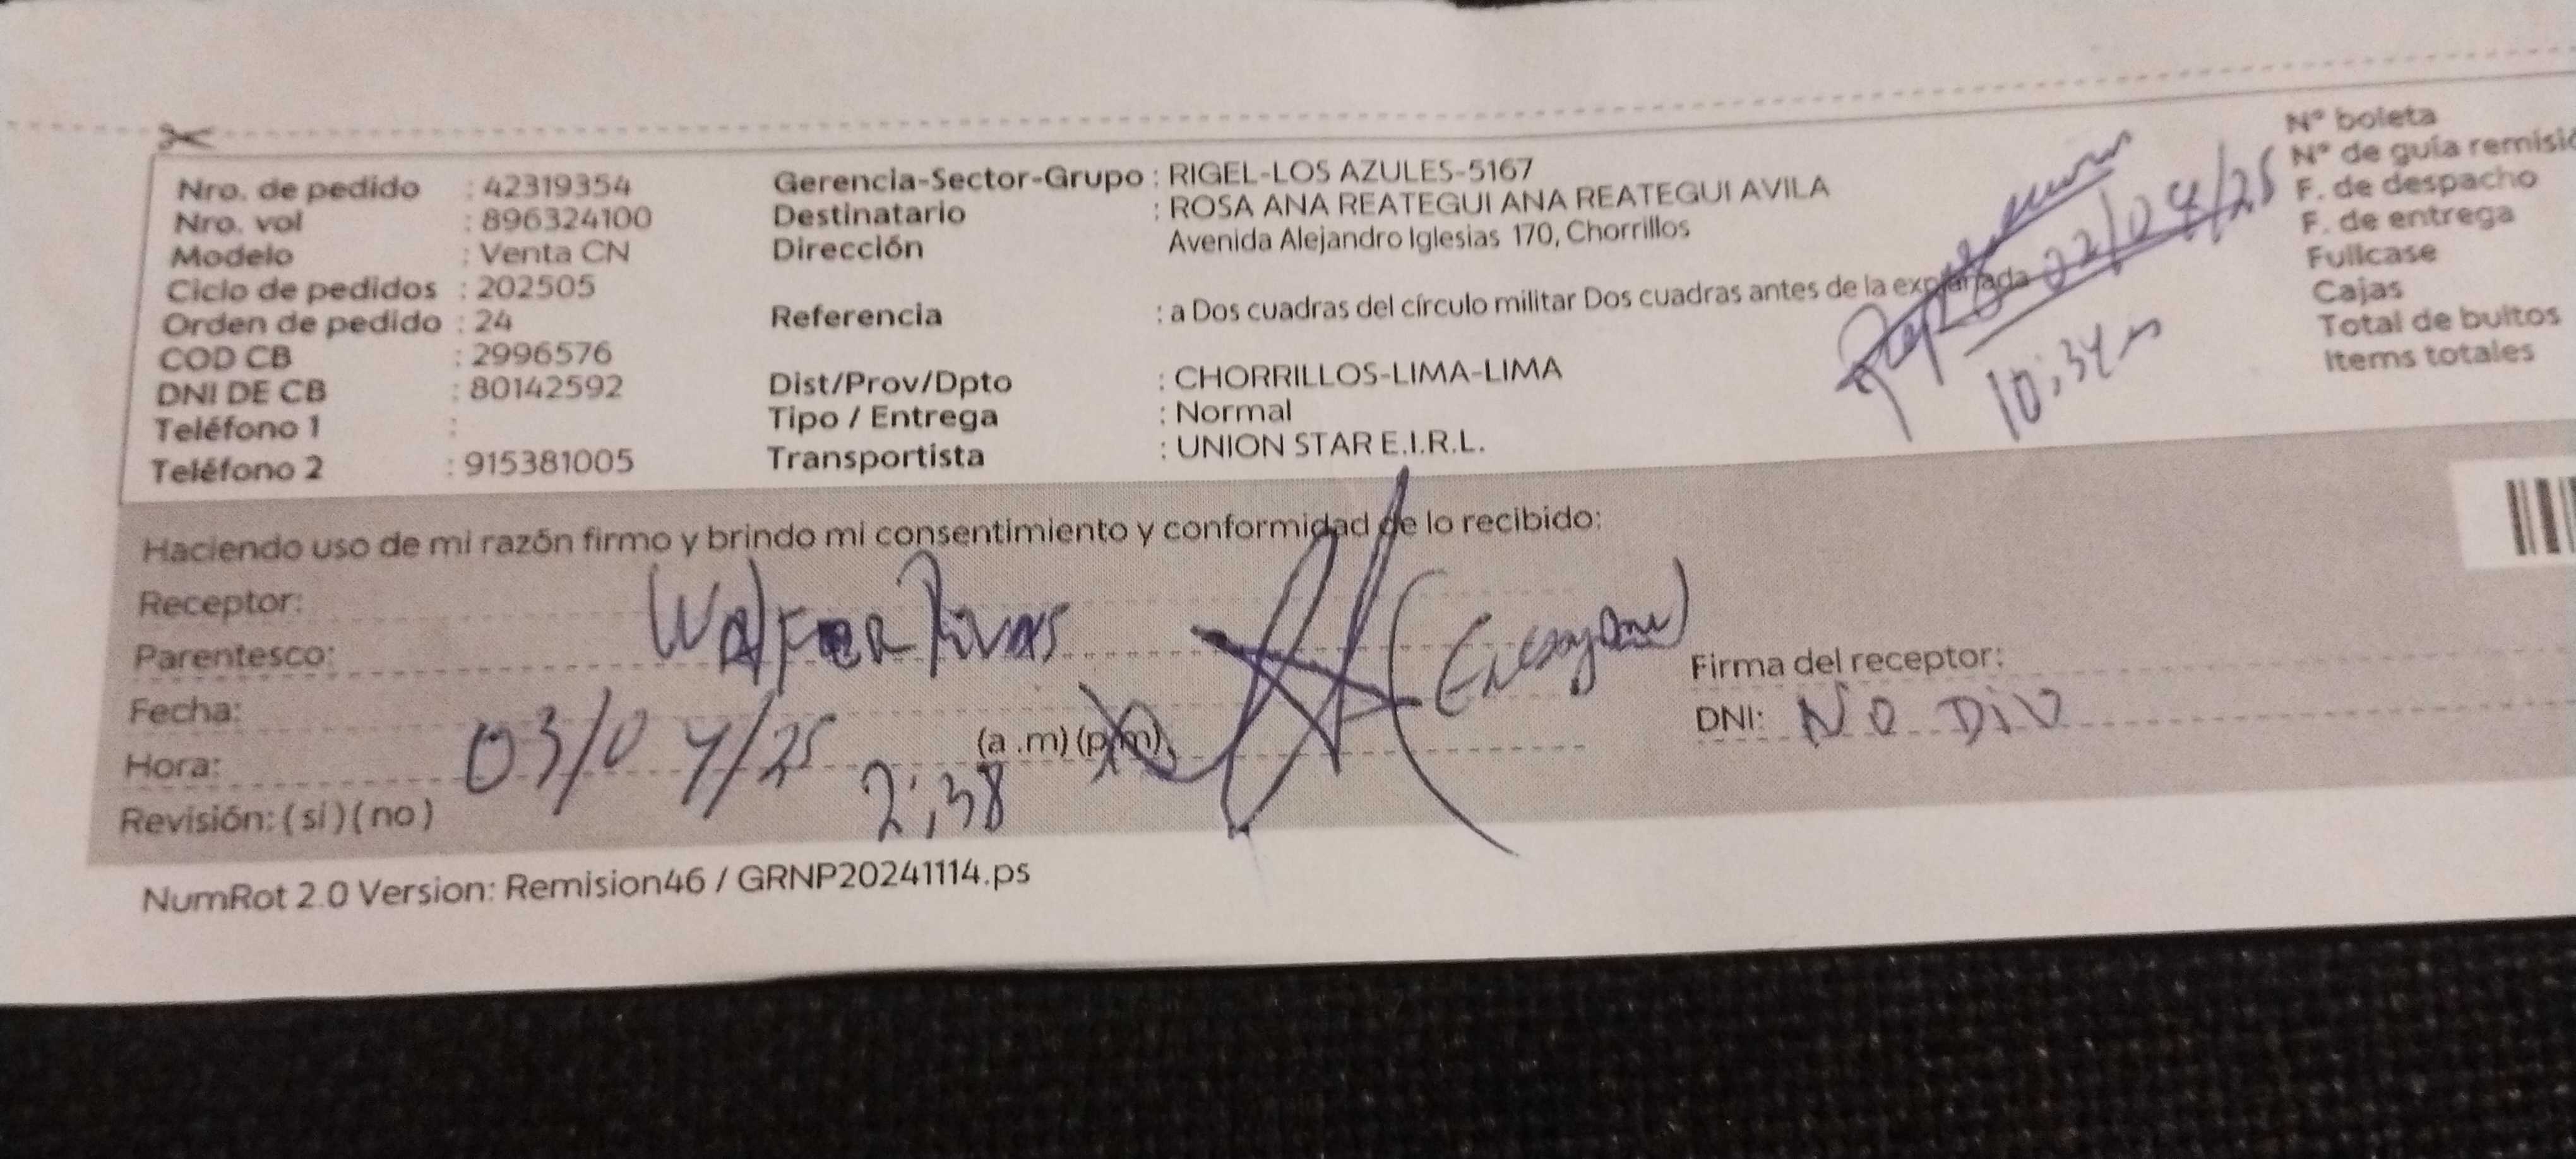 Nro. de pedido : 42319354
Nro. vol : 896324100
Modelo : Venta CN
Ciclo de pedidos : 202505
Orden de pedido : 24
COD CB : 2996576
DNI DE CB : 80142592
Teléfono 1 :
Teléfono 2 : 915381005
Gerencia-Sector-Grupo : RIGEL-LOS AZULES-5167
Destinatario : ROSA ANA REATEGUI ANA REATEGUI AVILA
Dirección Avenida Alejandro Iglesias 170, Chorrillos
Referencia : a Dos cuadras del círculo militar Dos cuadras antes de la explanada
Dist/Prov/Dpto : CHORRILLOS-LIMA-LIMA
Tipo / Entrega : Normal
Transportista : UNION STAR E.I.R.L.
02/04/25
10:34
N° boleta
N° de guía remisió
F. de despacho
F. de entrega
Fullcase
Cajas
Total de bultos
Items totales
Haciendo uso de mi razón firmo y brindo mi consentimiento y conformidad de lo recibido:
Receptor:
Parentesco: Rivas
Fecha: 03/04/25
Hora: (a .m) (p.m)
2:38
Revisión: ( si ) ( no )
Firma del receptor:
DNI: NO DIO
NumRot 2.0 Version: Remision46 / GRNP20241114.ps